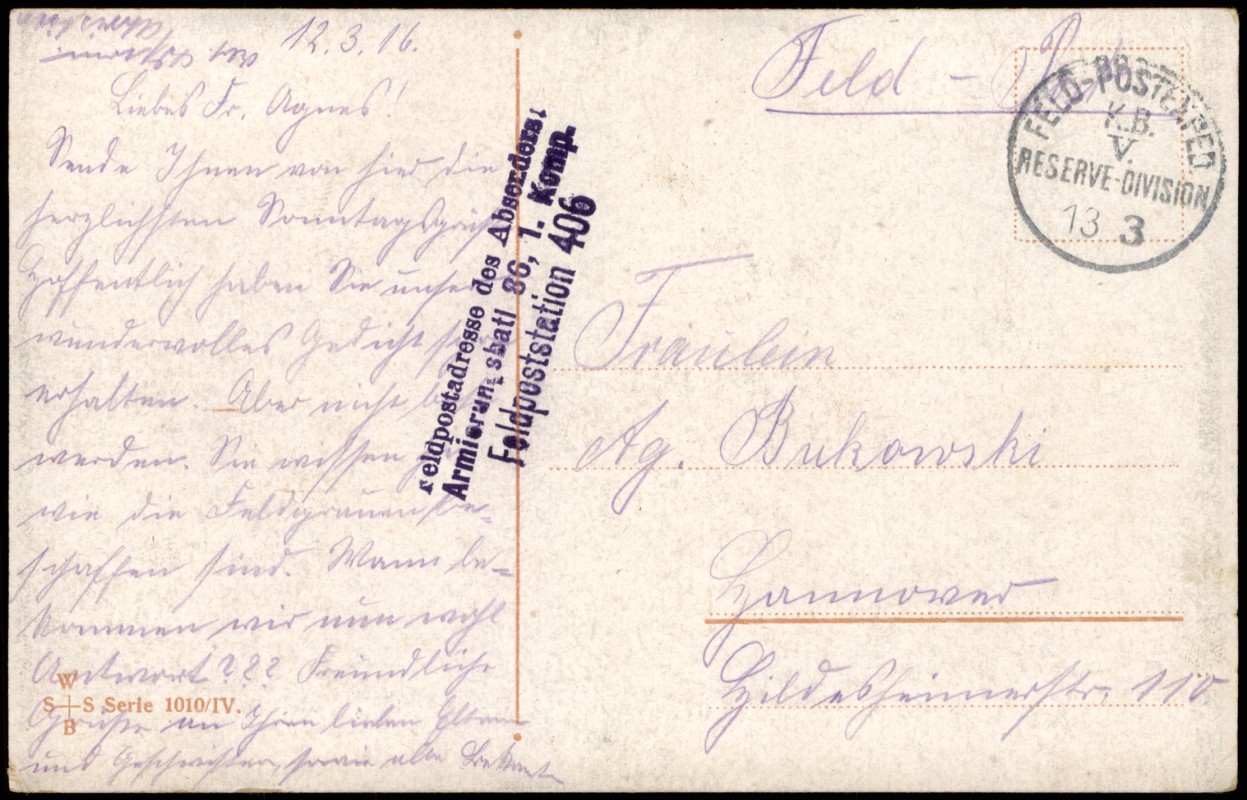 12.3.16.
Liebes Frl. Agnes!
Sende Ihnen von hier die
herzlichsten Sonntagsgrüße
Hoffentlich haben Sie unser
wundervolles Gedicht
erhalten. Aber nicht
werden. Sie wissen ja
wie die Feldgrauen be-
schaffen sind. Wann be-
kommen wir nun wohl
Antwort??? Freundliche
Grüße an Ihren lieben Eltern
und Geschwister, sowie alle Bekannte
W
S S Serie 1010/IV.
B
Feldpostadresse des Absenders:
Armierungsbatl 86, 1. Komp.
Feldpoststation 406
Feld - Post
FELD-POSTEXPED.
K.B.
V.
RESERVE-DIVISION
13 3
Fräulein
Ag. Bukowski
Hannover
Hildesheimerstr. 110